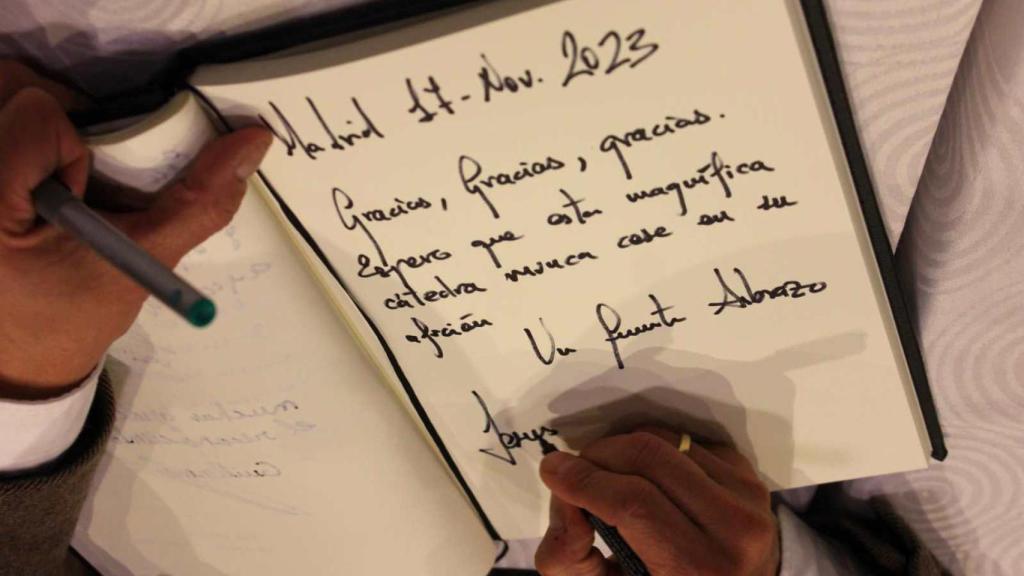 Madrid 17-Nov. 2023
Gracias, Gracias, gracias.
Espero que esta magnífica
cátedra nunca cese en su
afición
Un fuerte Abrazo
muchas